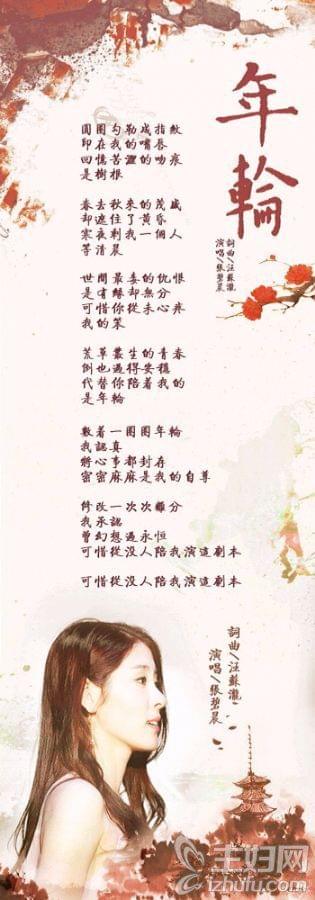 年輪
詞曲/汪蘇瀧
演唱/張碧晨
圓圈勾勒成指紋
印在我的嘴唇
回憶苦澀的吻痕
是樹根
春去秋來的茂盛
却遮住了黄昏
寒夜剩我一個人
等清晨
世間最毒的仇恨
是有緣却無分
可惜你從未心疼
我的笨
荒草叢生的青春
倒也過得安穩
代替你陪着我的
是年輪
數着一圈圈年輪
我認真
將心事都封存
密密麻麻是我的自尊
修改一次次離分
我承認
曾幻想過永恒
可惜從没人陪我演這劇本
可惜從没人陪我演這劇本
詞曲/汪蘇瀧
演唱/張碧晨
主妇网
izhufu.com